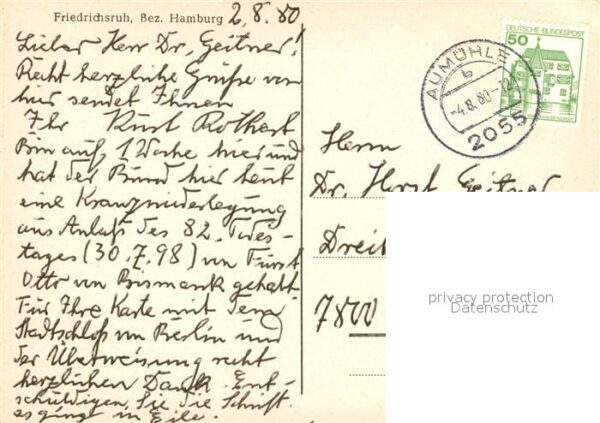 Friedrichsruh, Bez. Hamburg 2.8.80
Lieber Herr Dr. Geitner!
Recht herzliche Grüße von
hier sendet Ihnen
Ihr Kurt Rothert
Bin auf 1 Woche hier und
hat der Bund hier heut
eine Kranzniederlegung
aus Anlaß des 82. Todes-
tages (30.7.98) von Fürst
Otto von Bismarck gehalt
Für Ihre Karte mit dem
Stadtschloß von Berlin und
der Überweisung recht
herzlichen Dank. Ent-
schuldigen Sie die Schrift
es ging in Eile.
DEUTSCHE BUNDESPOST
50
AUMÜHLE
b
-4.8.80-12
2055
Herrn
Dr. Horst Geitner
Dreik
7800
privacy protection
Datenschutz